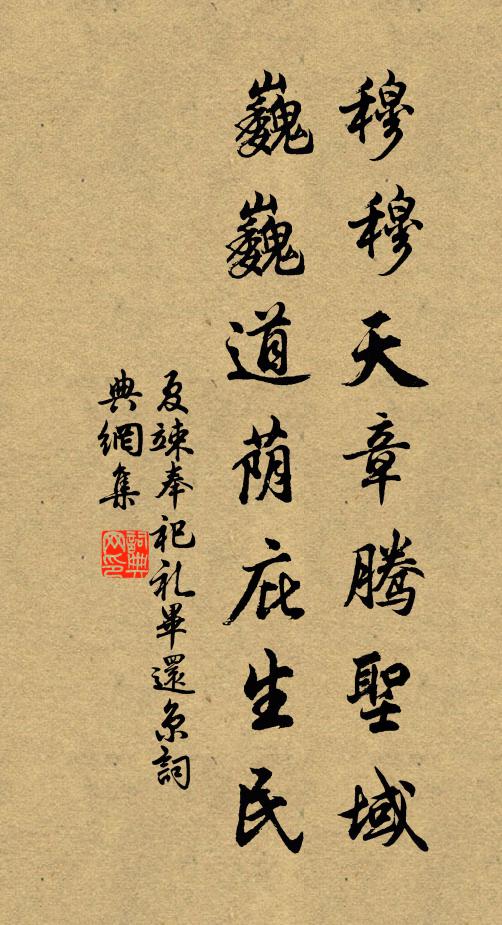 穆穆天章騰聖域
巍巍道荫庇生民
夏竦奉祀礼畢還京詞
典網集
詞典网印